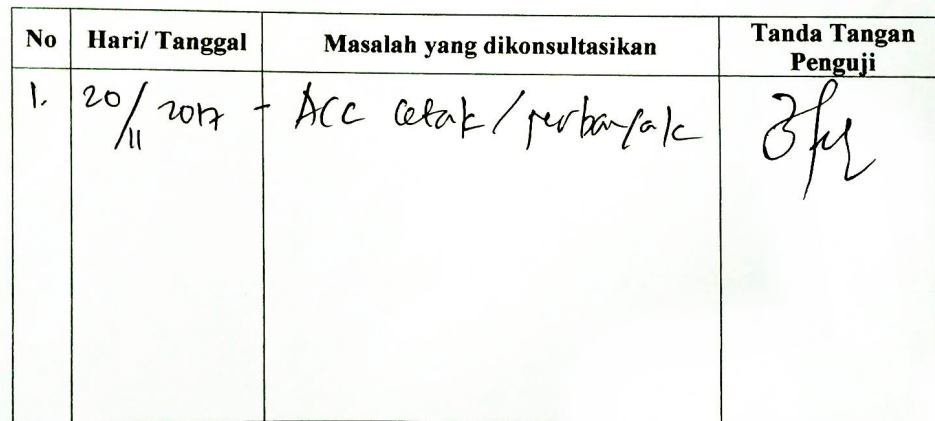 No Hari/ Tanggal Masalah yang dikonsultasikan Tanda Tangan Penguji
1. 20/11 2017 - ACC cetak / perbanyak